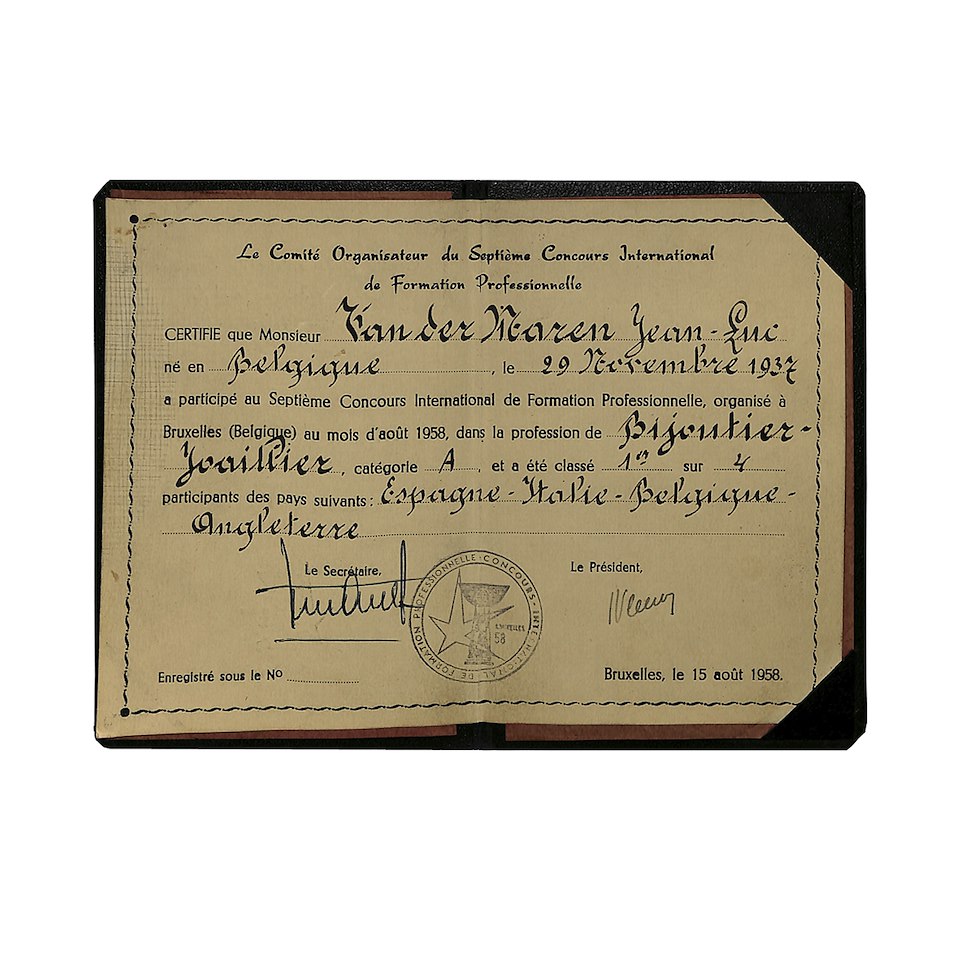 Le Comité Organisateur du Septième Concours International
de Formation Professionnelle
CERTIFIE que Monsieur Van der Maren Jean-Luc
né en Belgique, le 29 Novembre 1937
a participé au Septième Concours International de Formation Professionnelle, organisé à
Bruxelles (Belgique) au mois d'août 1958, dans la profession de Bijoutier-
Joaillier, catégorie A, et a été classé 1er sur 4
participants des pays suivants: Espagne-Italie-Belgique-
Angleterre
Le Secrétaire,
Le Président,
CONCOURS · INTERNATIONAL · DE FORMATION PROFESSIONNELLE ·
BRUXELLES
58
Enregistré sous le No
Bruxelles, le 15 août 1958.